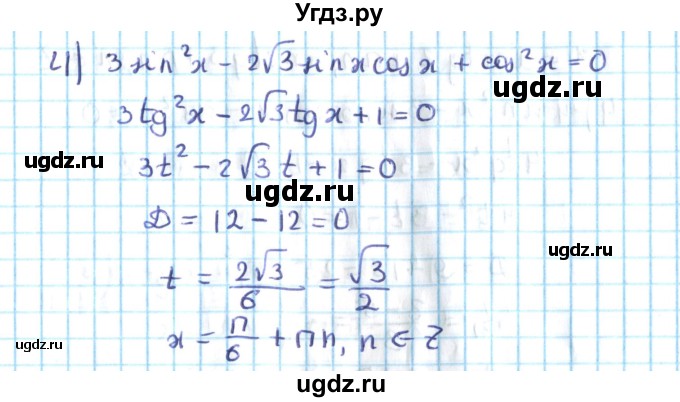 Угдз.ру
4) 3 sin²x - 2√3 sin x cos x + cos²x = 0
ugdz.ru
3tg²x - 2√3 tg x + 1 = 0
ugdz.ru
3t² - 2√3 t + 1 = 0
ugdz.ru
D = 12 - 12 = 0
ugdz.ru
t = 2√3/6 = √3/2
ugdz.ru
x = π/6 + πn, n ∈ Z
ugdz.ru
ugdz.ru